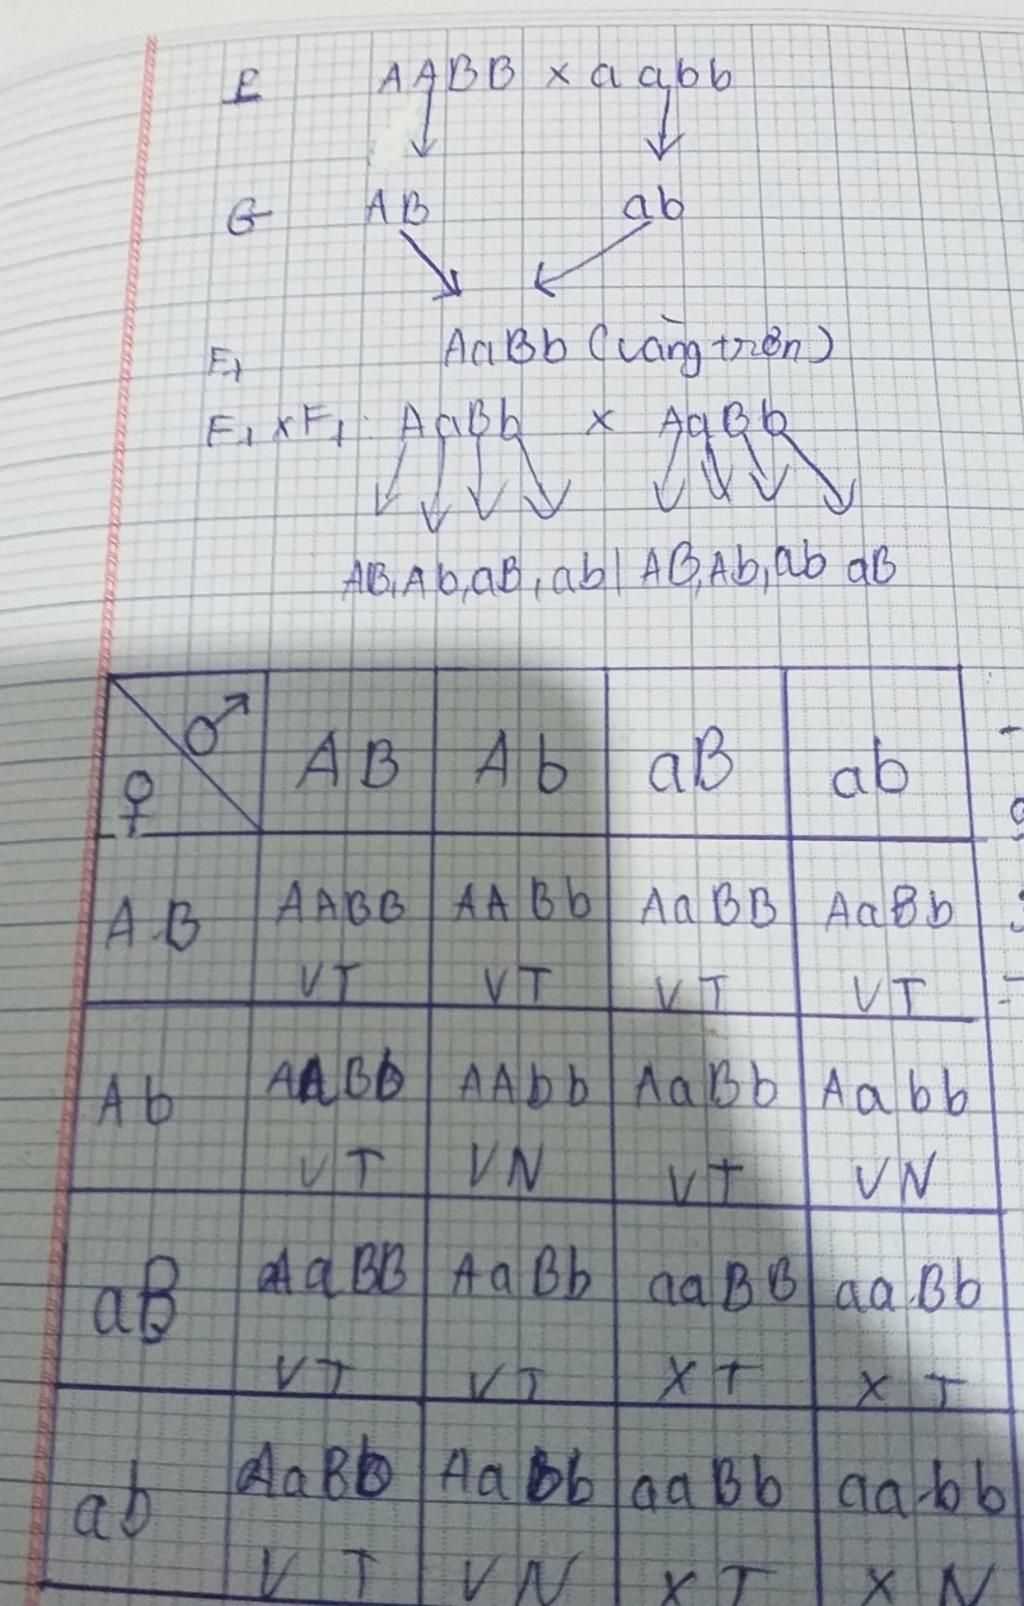 P AABB x aabb
G AB ab
F1 AaBb (vàng trơn)
F1 x F1: AaBb x AaBb
AB, Ab, aB, ab | AB, Ab, ab aB
♂
♀
AB Ab aB ab
AB AABB AABb AaBB AaBb
VT VT VT VT
Ab AABb AAbb AaBb Aabb
VT VN VT VN
aB AaBB AaBb aaBB aaBb
VT VT XT XT
ab AaBb AaBb aaBb aabb
VT VN XT XN